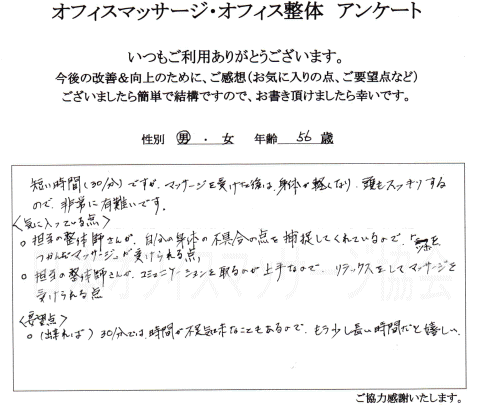 オフィスマッサージ・オフィス整体 アンケート
いつもご利用ありがとうございます。
今後の改善&向上のために、ご感想(お気に入りの点、ご要望点など)
ございましたら簡単で結構ですので、お書き頂けましたら幸いです。
性別 男 ・ 女 年齢 56 歳
短い時間(30分)ですが、マッサージを受けた後は、身体が軽くなり、頭もスッキリする
ので、非常に有難いです。
<気に入っている点>
○ 担当の整体師さんが、自分の身体の不具合の点を捕捉してくれているので、「要点
つかんだマッサージ」が受けられる点。
○ 担当の整体師さんが、コミュニケーションを取るのが上手なので、リラックスをしてマッサージを
受けられる点
<要望点>
○ (出来れば) 30分では時間が不足気味なこともあるので、もう少し長い時間だと嬉しい。
オフィスマッサージ協会
ご協力感謝いたします。